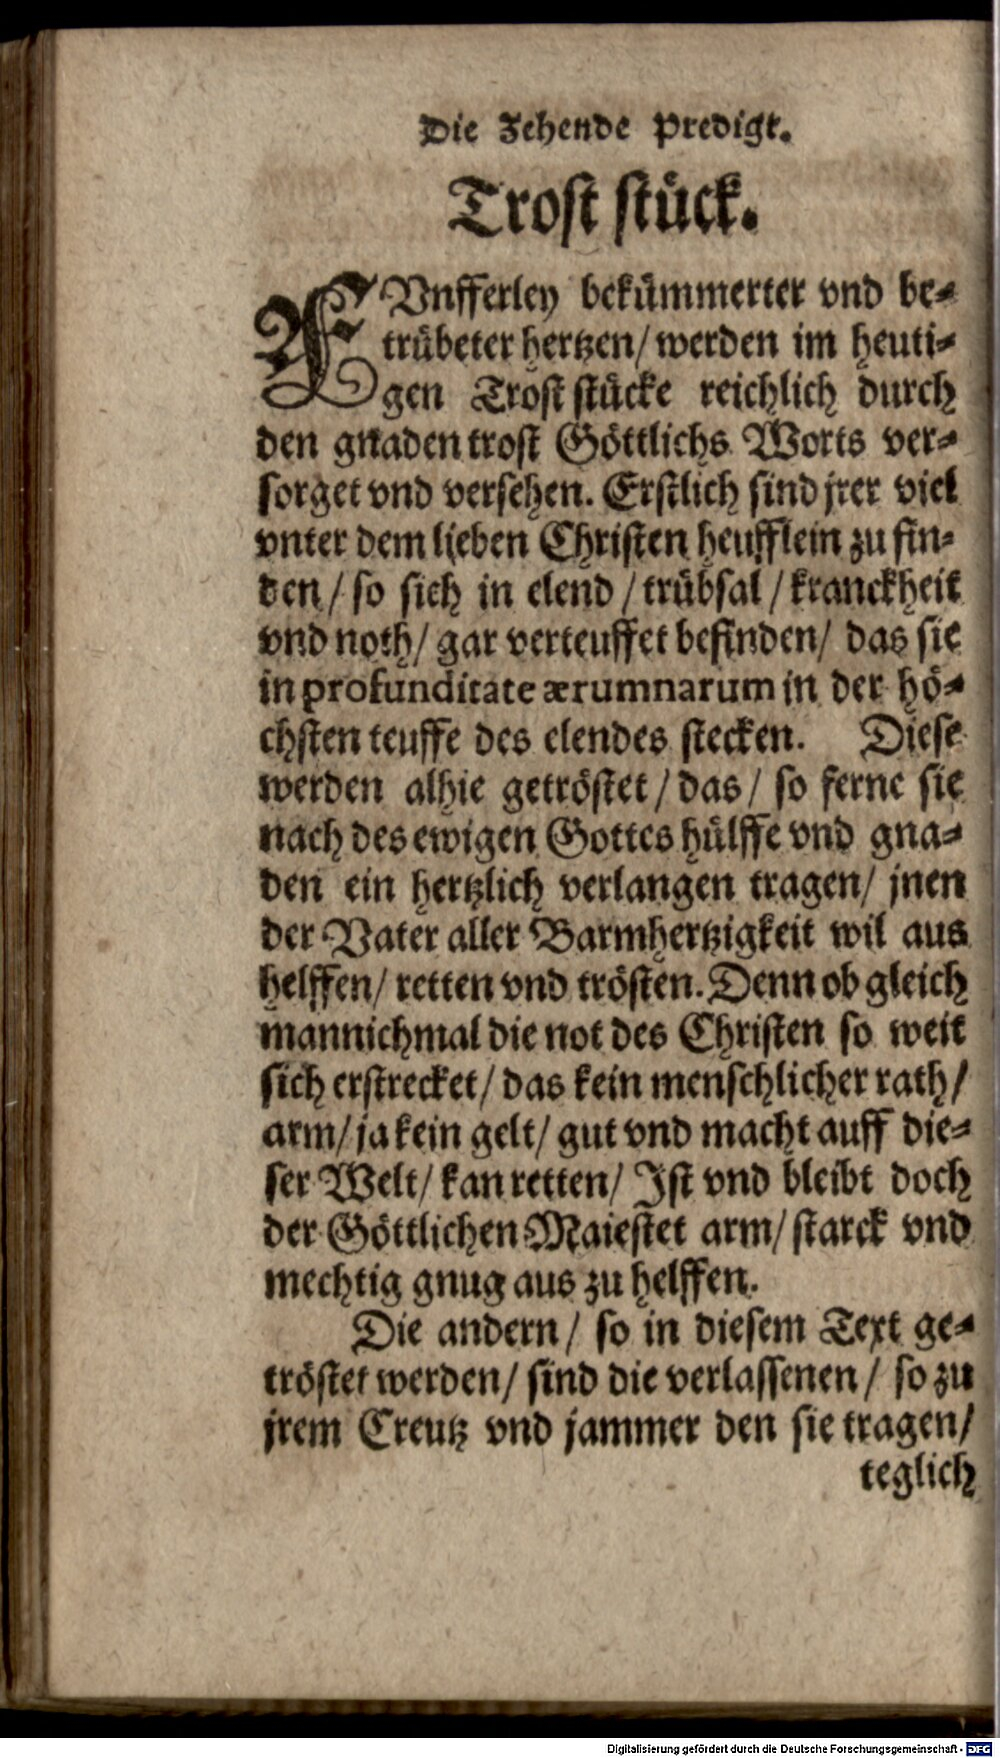 Die Zehende Predigt.
Trost stück.
FVnfferley bekümmerter vnd be-
trübeter hertzen/ werden im heuti-
gen Trost stücke reichlich durch
den gnaden trost Göttlichs Worts ver-
sorget vnd versehen. Erstlich sind jrer viel
vnter dem lieben Christen heufflein zu fin-
den/ so sich in elend/ trübsal/ kranckheit
vnd noth/ gar verteuffet befinden/ das sie
in profunditate ærumnarum in der hö-
chsten teuffe des elendes stecken. Diese
werden alhie getröstet/ das/ so ferne sie
nach des ewigen Gottes hülffe vnd gna-
den ein hertzlich verlangen tragen/ jnen
der Vater aller Barmhertzigkeit wil aus
helffen/ retten vnd trösten. Denn ob gleich
mannichmal die not des Christen so weit
sich erstrecket/ das kein menschlicher rath/
arm/ ja kein gelt/ gut vnd macht auff die-
ser Welt/ kan retten/ Ist vnd bleibt doch
der Göttlichen Maiestet arm/ starck vnd
mechtig gnug aus zu helffen.
Die andern/ so in diesem Text ge-
tröstet werden/ sind die verlassenen/ so zu
jrem Creutz vnd jammer den sie tragen/
teglich
Digitalisierung gefördert durch die Deutsche Forschungsgemeinschaft - DFG